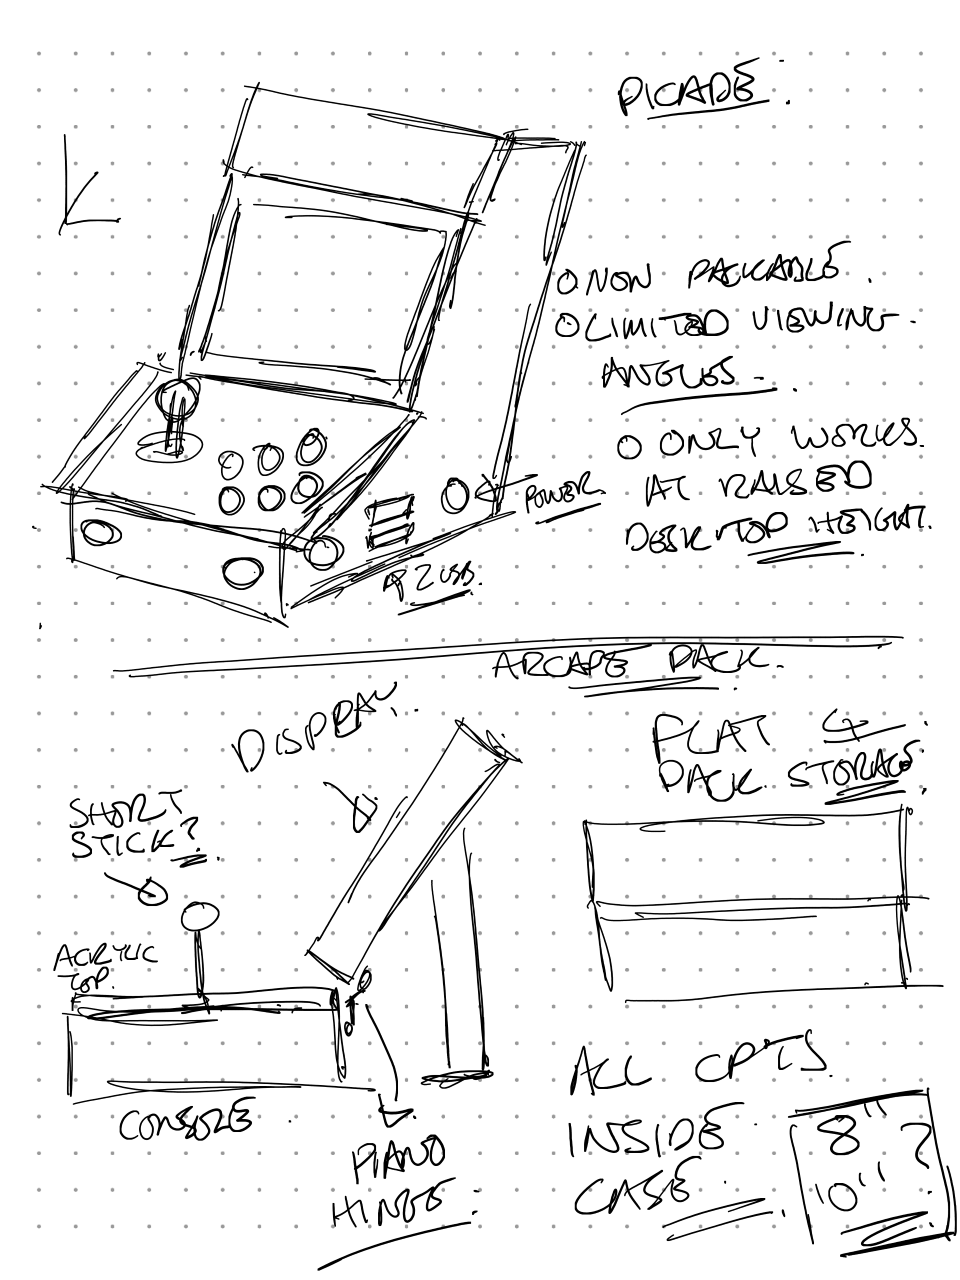 PICADE.
O NON PACKABLE.
O LIMITED VIEWING
ANGLES.
O ONLY WORKS
AT RAISED
DESKTOP HEIGHT.
POWER
2 USB.
ARCADE PACK.
DISPLAY
FLAT &
PACK STORAGE
SHORT
STICK?
ACRYLIC
TOP.
CONSOLE
PIANO
HINGE.
ALL CPTS
INSIDE
CASE
8" ?
10"